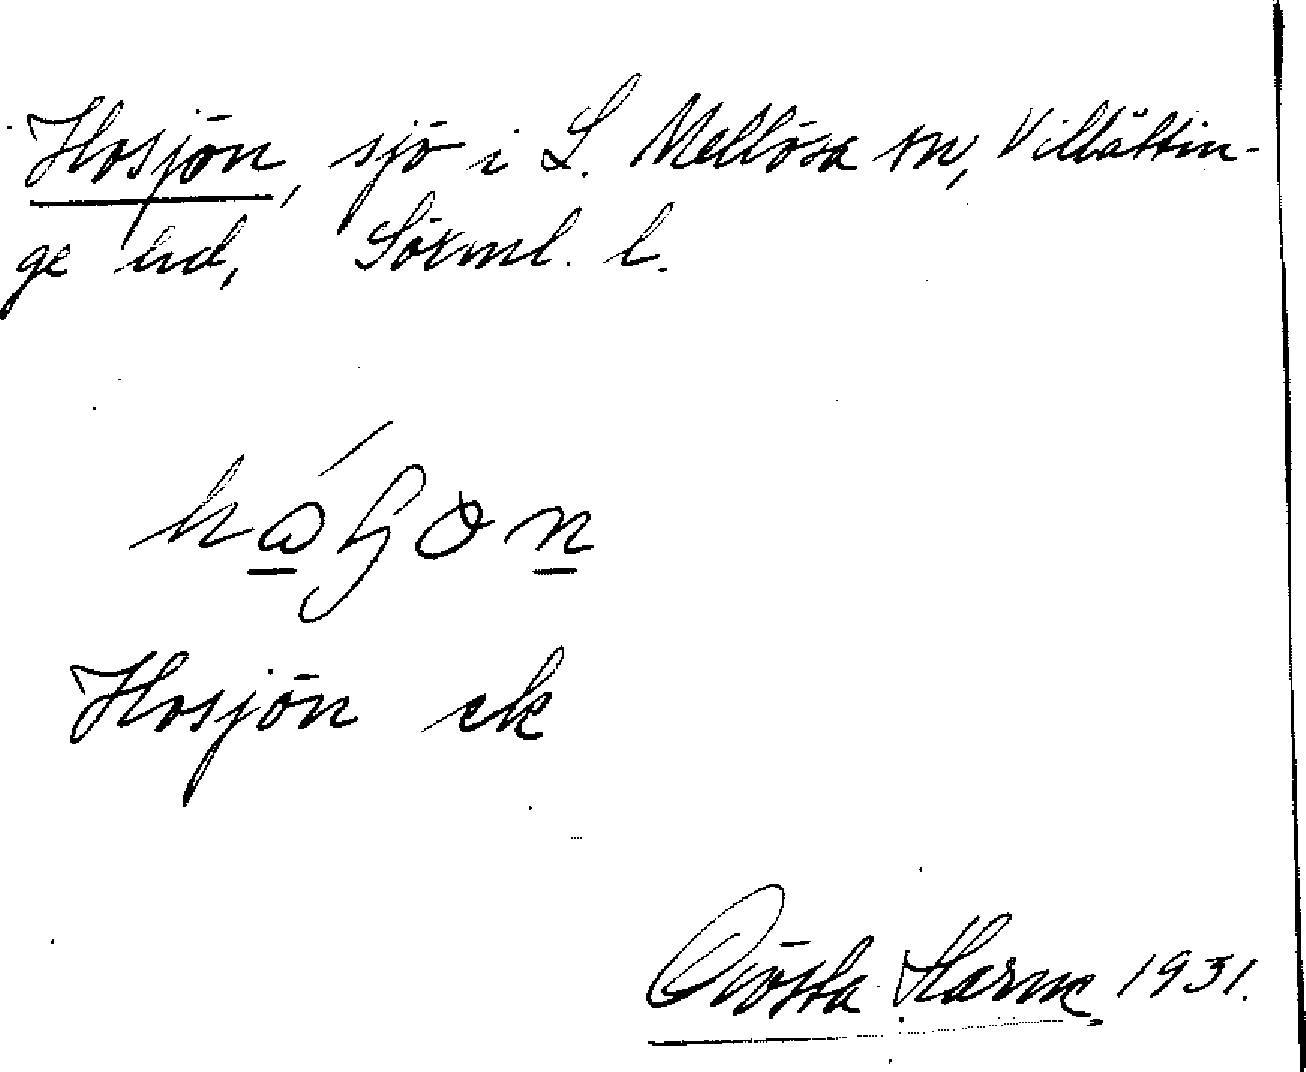 Hosjön, sjö i L. Mellösa sn, Villåttin-
ge hd, Sörml. l.
Hosjön ek
Gösta Harmc 1931.